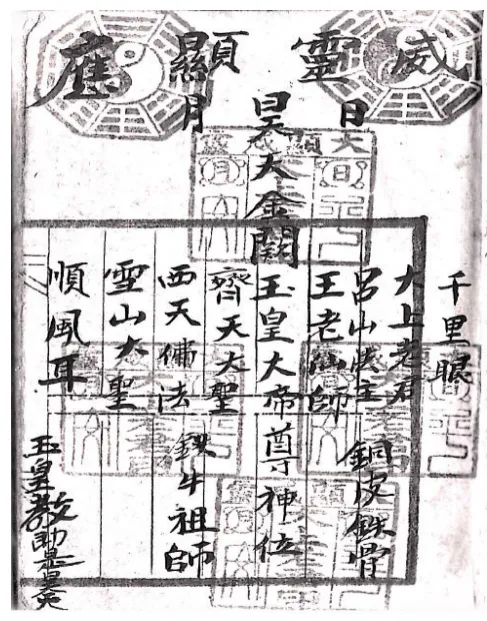 威靈顯應
日
昊天金闕
月
千里眼
大上老君
呂山法主 銅皮銕骨
王老仙師
玉皇大帝尊神位
齊天大聖
西天佛法 鉄牛祖師
雪山大聖
順風耳
玉皇教